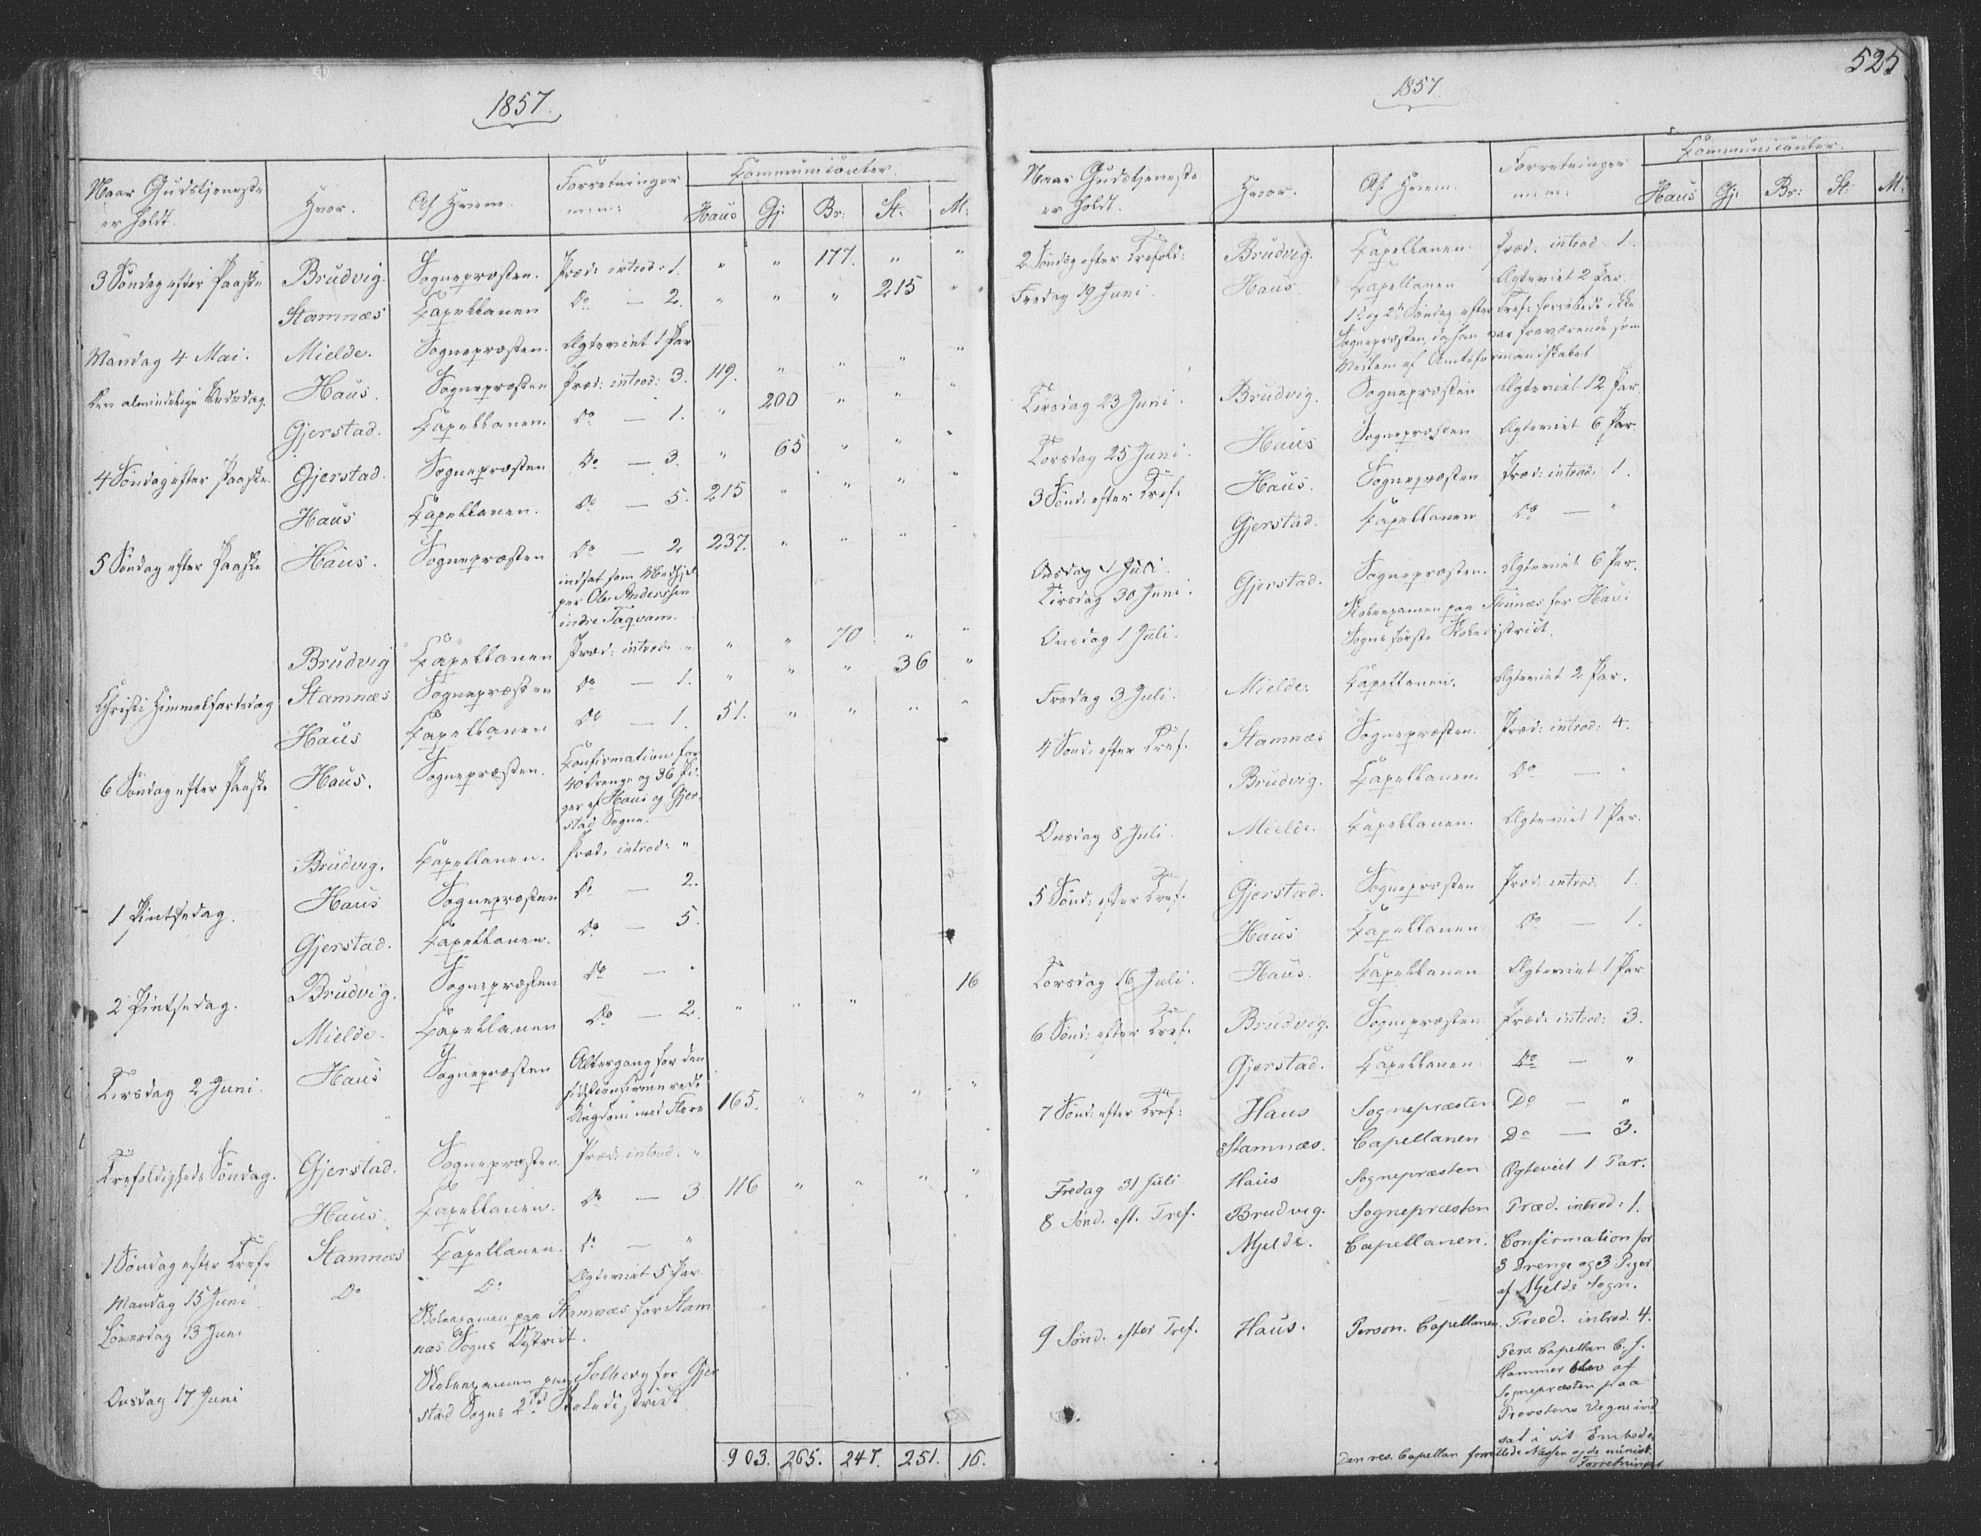 1857.
Naar Gudstjeneste er holdt. Hvor. Af Hvem. Forretninger m: m: Communicanter.
Haus Gj: Br: St. M:
3 Søndag efter Paaske Brudvig. Sognepræsten. Præd: introd: 1. " " 177. " "
Stamnæs Capellanen Do — 2. " " " 215 "
Mandag 4 Mai. Mjelde. Sognepræsten. Ægteviet 1 Par
Den almindelige Bededag. Haus. Sognepræsten Præd: introd: 3. 119. " " " "
Gjerstad. Capellanen. Do — 1. " 200 " " "
4 Søndag efter Paaske. Gjerstad. Sognepræsten Do — 3. " 65 " " "
Haus Capellanen. Do — 5. 215 " " " "
5 Søndag efter Paaske Haus. Sognepræsten Do — 2 237. " " " "
indsat som Medhjel
per Ole Anderssen
indre Taqvam.
Brudvig Capellanen Præd: introd: " " " 70 " "
Christi Himmelfartsdag Stamnæs Sognepræsten Do — 1. " " " 36 "
Haus Capellanen Do — 1. 51. " " " "
6 Søndag efter Paaske Haus. Sognepræsten. Confirmation for
40 Drenge og 36 Pi-
ger af Haus og Gjer-
stad Sogne.
Brudvig. Capellanen. Præd: introd: "
1 Pintsedag. Haus Sognepræsten Do — 2.
Gjerstad. Capellanen. Do — 5.
2 Pintsedag. Brudvig. Sognepræsten Do — "
Mielde. Capellanen Do — 2. " " " " 16
Tirsdag 2 Juni. Haus Sognepræsten Altergang for den
sidstconfirmerede
Ungdom med Flere 165. " " " "
Trefoldigheds Søndag. Gjerstad. Sognepræsten. Præd: introd: "
Haus Capellanen. Do — 3 116 " " " "
1 Søndag efter Tref. Stamnæs Capellanen. Do — "
Mandag 15 Juni Do Do Ægteviet 5 Par
Løverdag 13 Juni Skoleexamen paa Stamnæs for Stam
næs Sogns District.
Onsdag 17 Juni Skoleexamen paa Solberg for Gjer
stad Sogns 2det Skoledistrict.
903. 265. 247. 251. 16.
525
1857
Naar Gudstjeneste er holdt. Hvor. Af Hvem. Forretninger m: m: Communicanter.
Haus Gj: Br: St. M:
2 Søndag efter Trefold: Brudvig. Capellanen. Præd. introd: 1.
Fredag 19 Juni. Haus. Capellanen Ægteviet 2 Par.
1ste og 2den Søndag efter Tref: forrettede ikke
Sognepræsten, da han var fraværende som
Medlem af Amtsformandskabet
Tirsdag 23 Juni. Brudvig. Sognepræsten Ægteviet 12 Par.
Torsdag 25 Juni. Haus Sognepræsten Ægteviet 6 Par.
3 Sønd: efter Tref. Haus. Sognepræsten Præd: introd: 1.
Gjerstad. Capellanen Do — "
Onsdag 1 Juli.
Tirsdag 30 Juni. Gjerstad. Sognepræsten. Ægteviet 6 Par.
Onsdag 1 Juli. Skoleexamen paa for Haus
Sogns første Skoledistrict.
Fredag 3 Juli. Mielde. Capellanen. Ægteviet 2 Par.
4 Sønd: efter Tref. Stamnæs Sognepræsten. Præd: introd: 4.
Brudvig. Capellanen. Do — "
Onsdag 8 Juli. Mielde. Capellanen. Ægteviet 1 Par.
5 Sønd: efter Tref. Gjerstad. Sognepræsten Præd. introd: 1.
Haus Capellanen Do — 1.
Torsdag 16 Juli. Haus. Capellanen Ægteviet 1 Par
6 Sønd: efter Tref. Brudvig. Sognepræsten. Præd: introd: 3.
Gjerstad. Capellanen. Do — "
7 Sønd: efter Tref: Haus Sognepræsten Do — "
Stamnæs. Capellanen Do — 3.
Fredag 31 Juli Haus Sognepræsten Ægteviet 1 Par.
8 Sønd. eft. Tref. Brudvig. Sognepræsten Præd. introd: 1.
Mjelde. Capellanen. Confirmation for
3 Drenge og 3 Piger
af Mjelde Sogn.
9 Sønd. efter Tref. Haus. Person. Capellanen. Præd. introd. 4.
Pers. Capellan C. J.
Hammer blev af
Sognepræsten paa
Provstens Vegne ind
sat i sit Embede.
Den res. Capellan forrettede Messen og de minist.
Forretninger